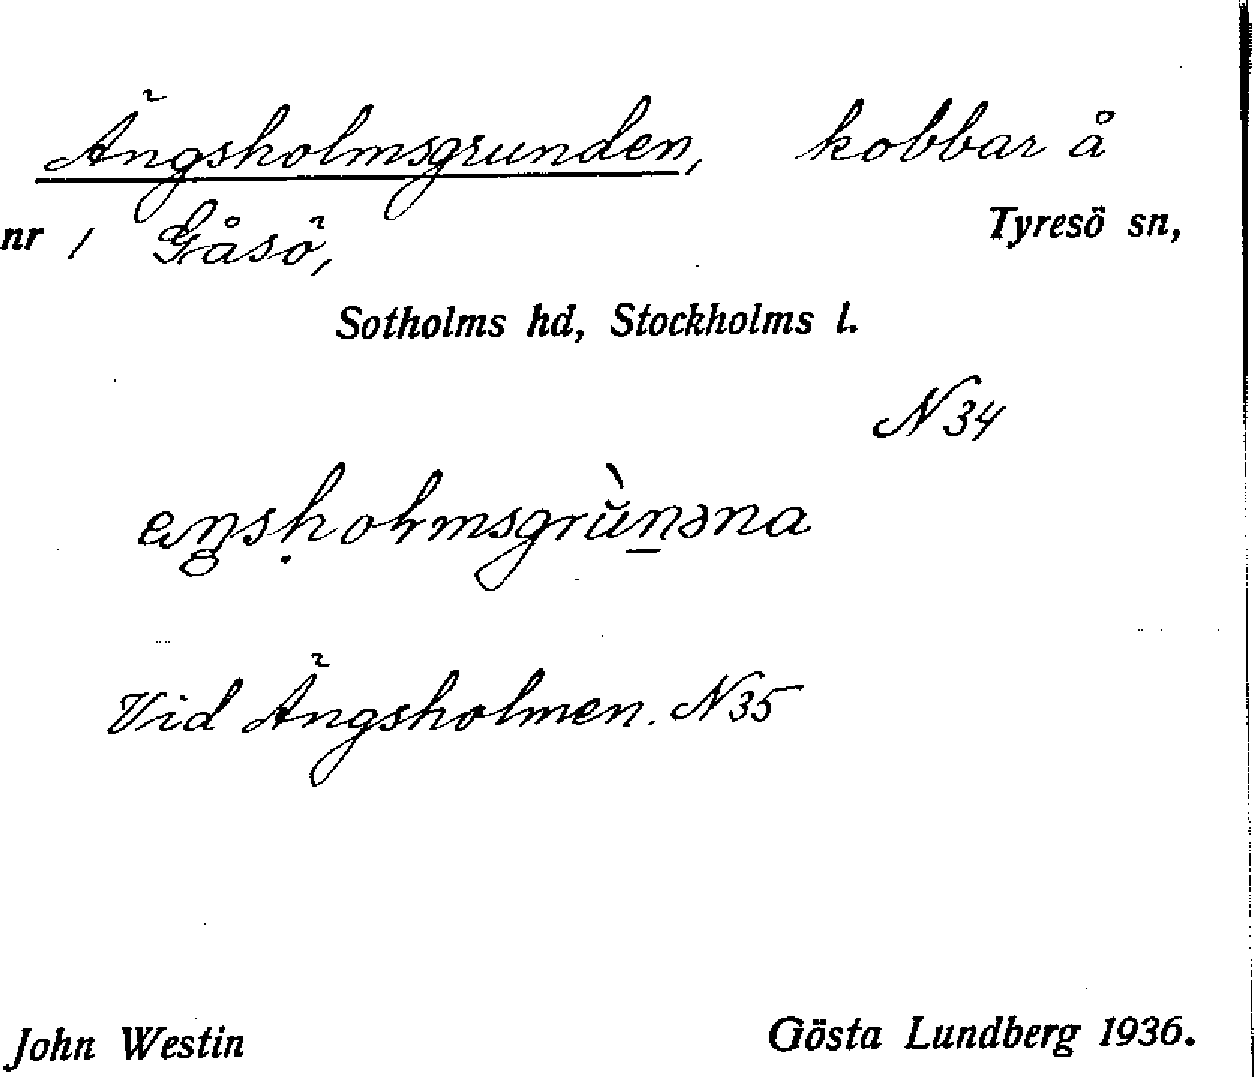 Ängsholmsgrunden, kobbar å
nr 1 Gåsö, Tyresö sn,
Sotholms hd, Stockholms l.
N34
Vid Ängsholmen. N35
John Westin Gösta Lundberg 1936.